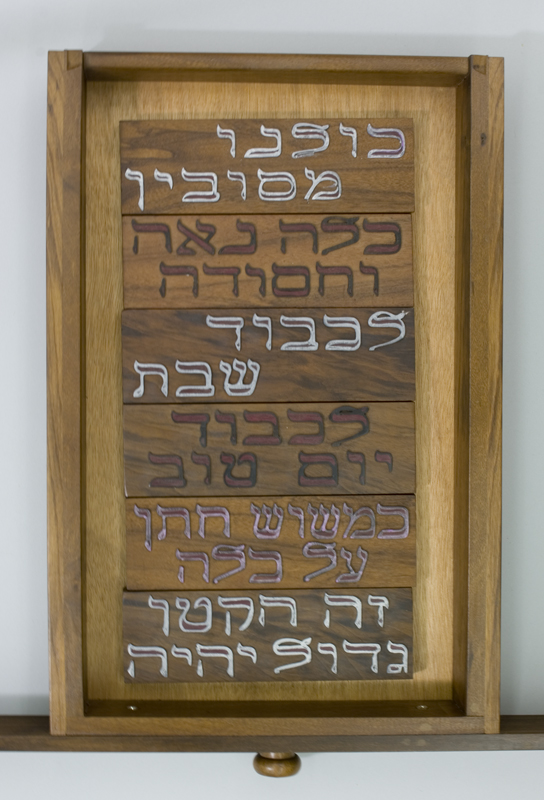 כולנו
מסובין
כלה נאה
וחסודה
לכבוד
שבת
לכבוד
יום טוב
כמשוש חתן
על כלה
זה הקטן
גדול יהיה